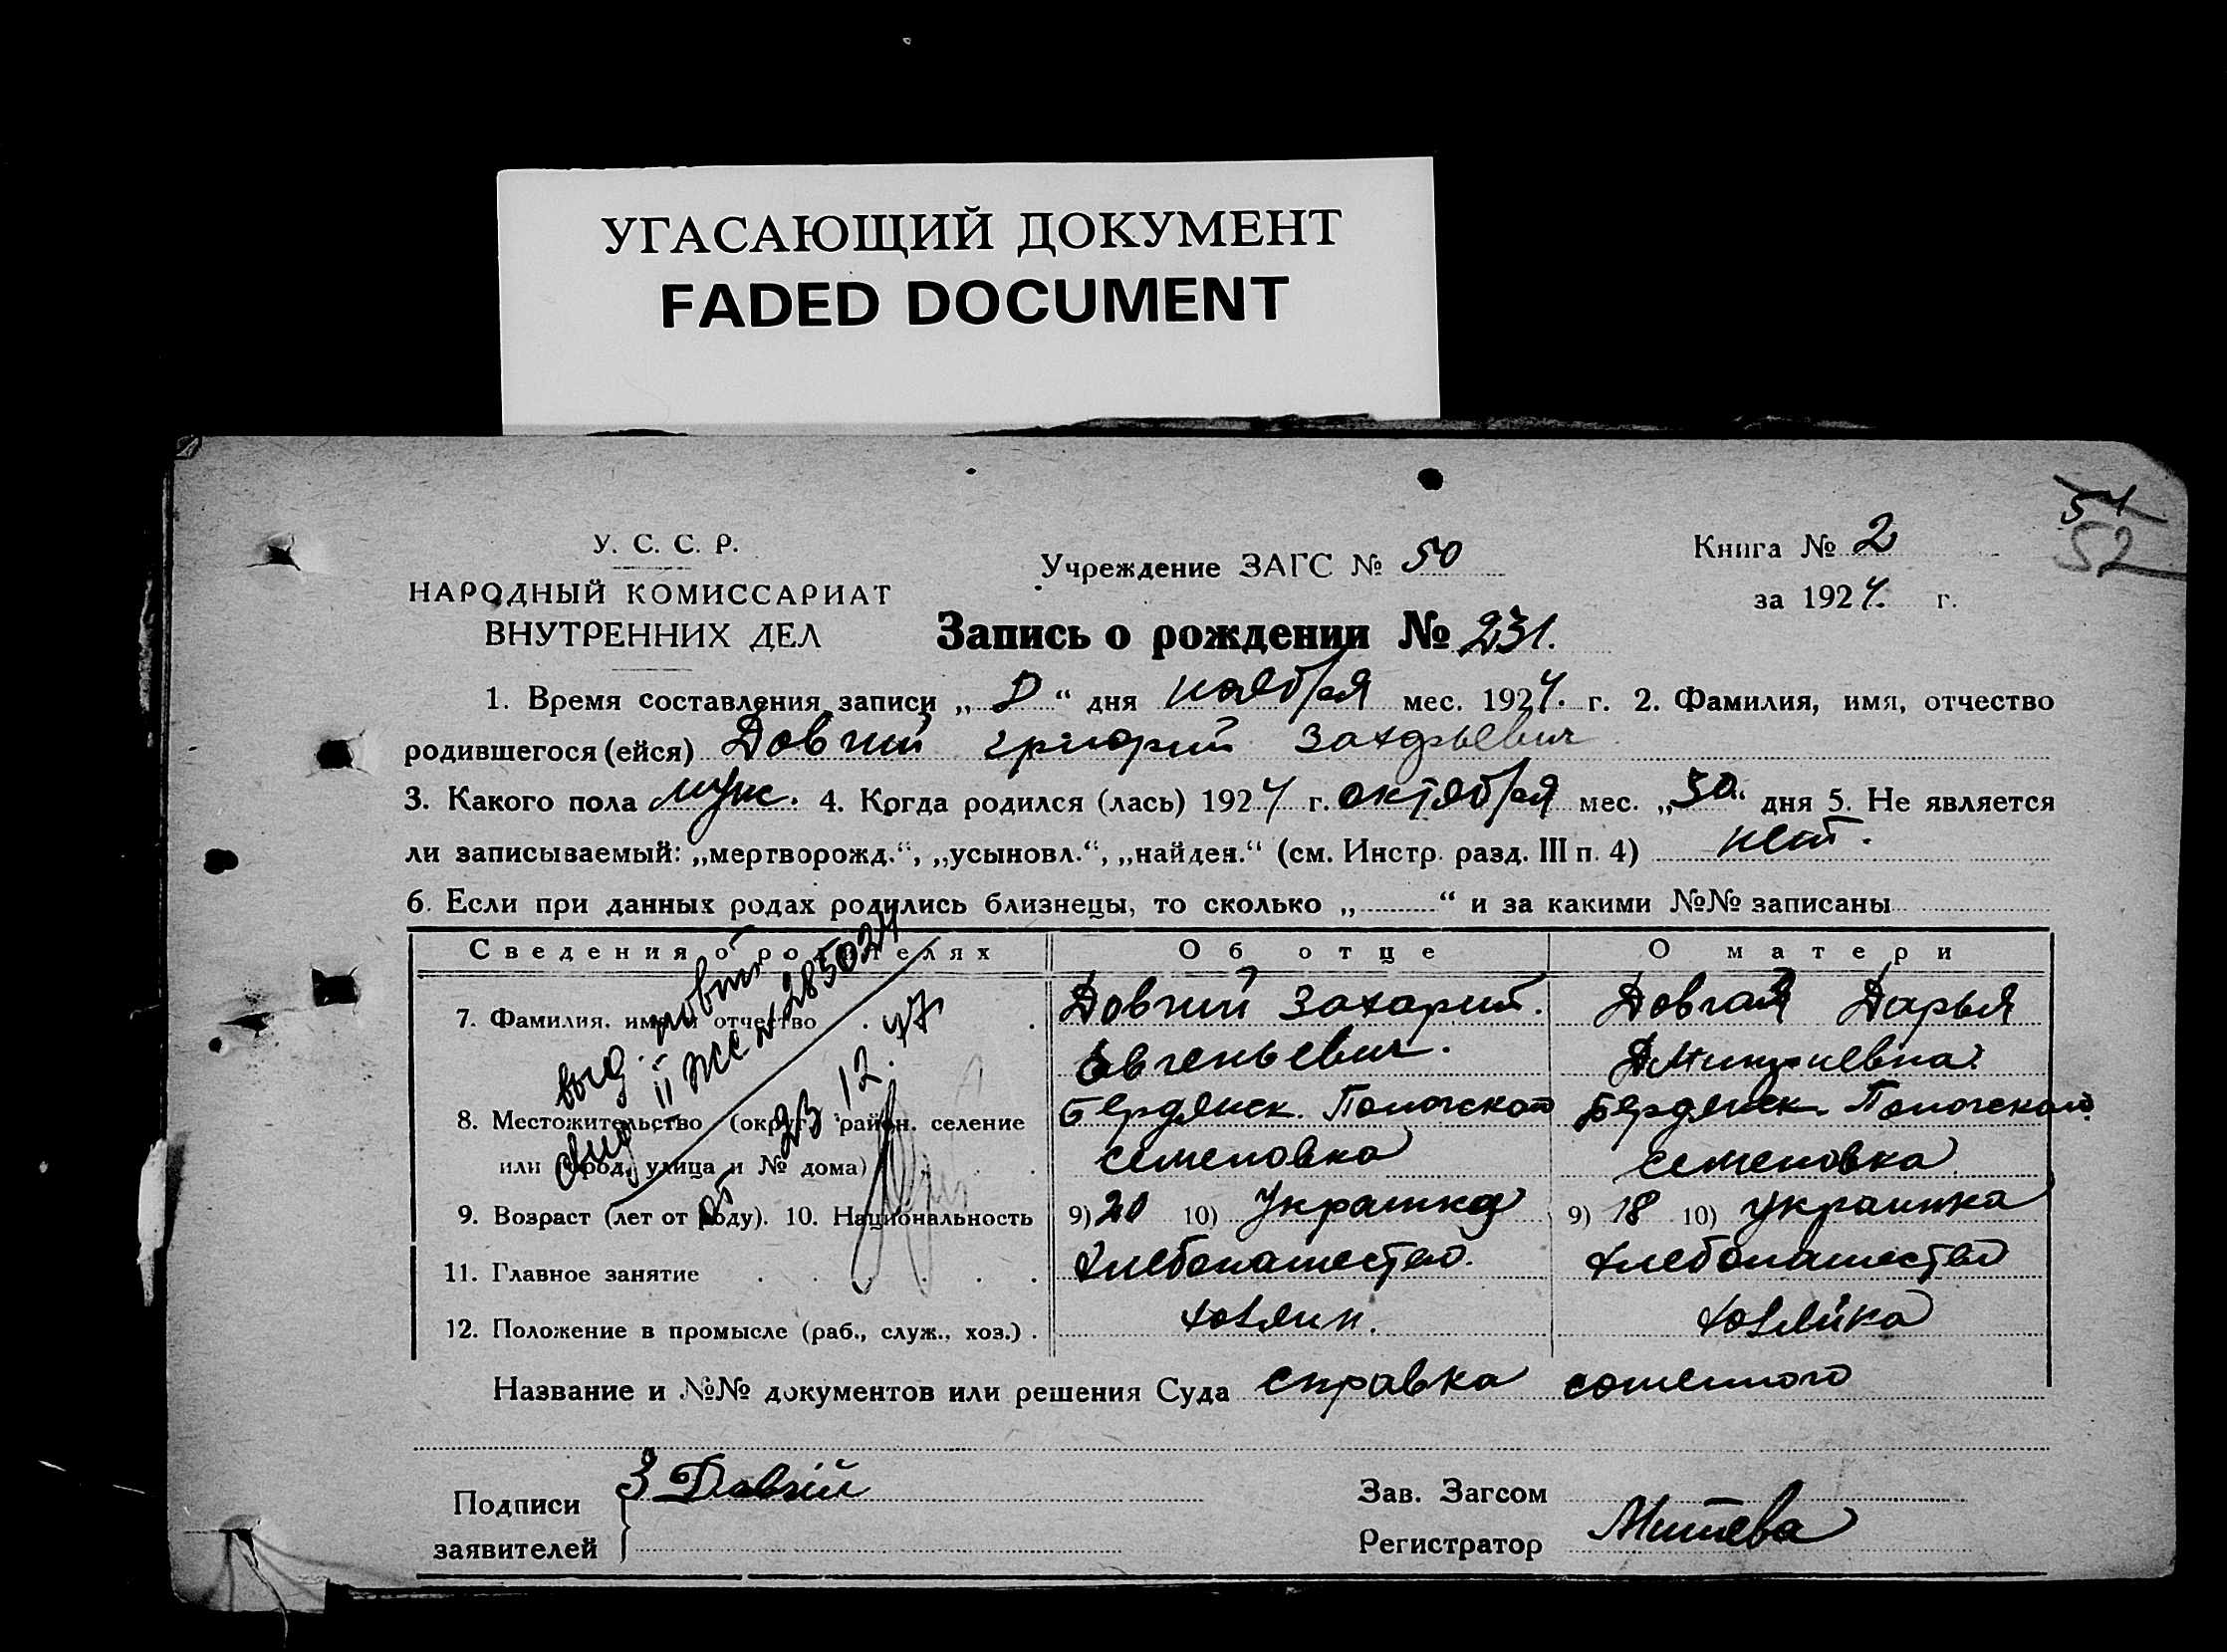 УГАСАЮЩИЙ ДОКУМЕНТ
FADED DOCUMENT
54
52
У. С. С. Р.
НАРОДНЫЙ КОМИССАРИАТ
ВНУТРЕННИХ ДЕЛ
Учреждение ЗАГС № 50
Книга № 2
за 1924. г.
Запись о рождении № 231.
1. Время составления записи „ “ дня ноября мес. 1924. г. 2. Фамилия, имя, отчество
родившегося (ейся) Довгий григорий Захарьевич
3. Какого пола муж. 4. Когда родился (лась) 1924 г. октября мес. „30“ дня 5. Не является
ли записываемый: „мертворожд.“, „усыновл.“, „найден.“ (см. Инстр. разд. III п. 4) нет.
6. Если при данных родах родились близнецы, то сколько „ “ и за какими №№ записаны
Сведения о родителях Об отце О матери
7. Фамилия, имя и отчество Довгий Захарий. Довгая Дарья
Евгеньевич. Дмитриевна
8. Местожительство (округ, район, селение Бердянск. Пологской Бердянск. Пологской
или город, улица и № дома) семеновка семеновка
9. Возраст (лет от роду). 10. Национальность 9) 20 10) Украинка 9) 18 10) украинка
11. Главное занятие хлебопашество. хлебопашество
12. Положение в промысле (раб., служ., хоз.) хозяин. хозяйка
выд. повт
II ЖС № 285024
23 12. 47
Название и №№ документов или решения Суда справка
Подписи
заявителей
З Довгій
Зав. Загсом
Регистратор